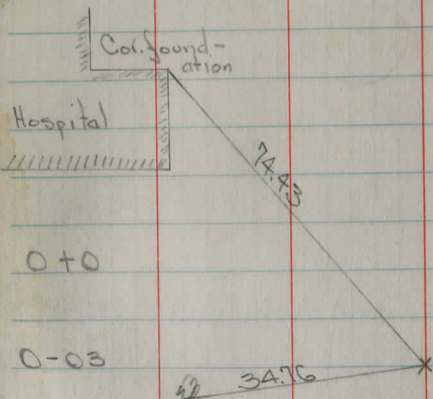 Cor. found-
ation
Hospital
74.43
0+0
0-03
34.76